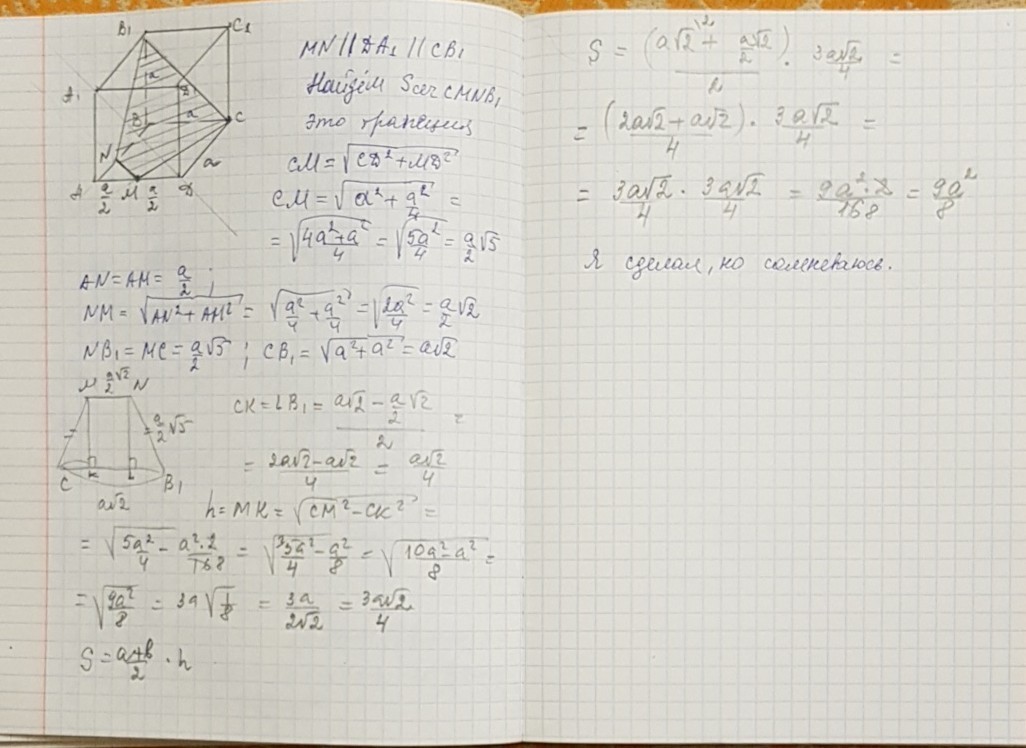 B₁ C₁
A₁ a D₁
B a C
N a
A a/2 M a/2 D
MN || DA₁ || CB₁
Найдём Sсеч CMNB₁
это трапеция
CM = √(CD² + MD²)
CM = √(a² + a²/4) =
= √((4a² + a²)/4) = √(5a²/4) = a/2 √5
AN = AM = a/2 ;
NM = √(AN² + AM²) = √(a²/4 + a²/4) = √(2a²/4) = a/2 √2
NB₁ = MC = a/2 √5 ; CB₁ = √(a² + a²) = a√2
M a/2 √2 N
a/2 √5
C K L B₁
a√2
CK = LB₁ = (a√2 - a/2 √2)/2 =
= (2a√2 - a√2)/4 = a√2/4
h = MK = √(CM² - CK²) =
= √(5a²/4 - a²·2/16 8) = √(5a²/4 - a²/8) = √((10a² - a²)/8) =
= √(9a²/8) = 3a √(1/8) = 3a/(2√2) = 3a√2/4
S = (a+b)/2 · h
S = (a√2 + a√2/2)/2 · 3a√2/4 =
= (2a√2 + a√2)/4 · 3a√2/4 =
= 3a√2/4 · 3a√2/4 = 9a²·2/16 8 = 9a²/8
Я сделал, но сомневаюсь.